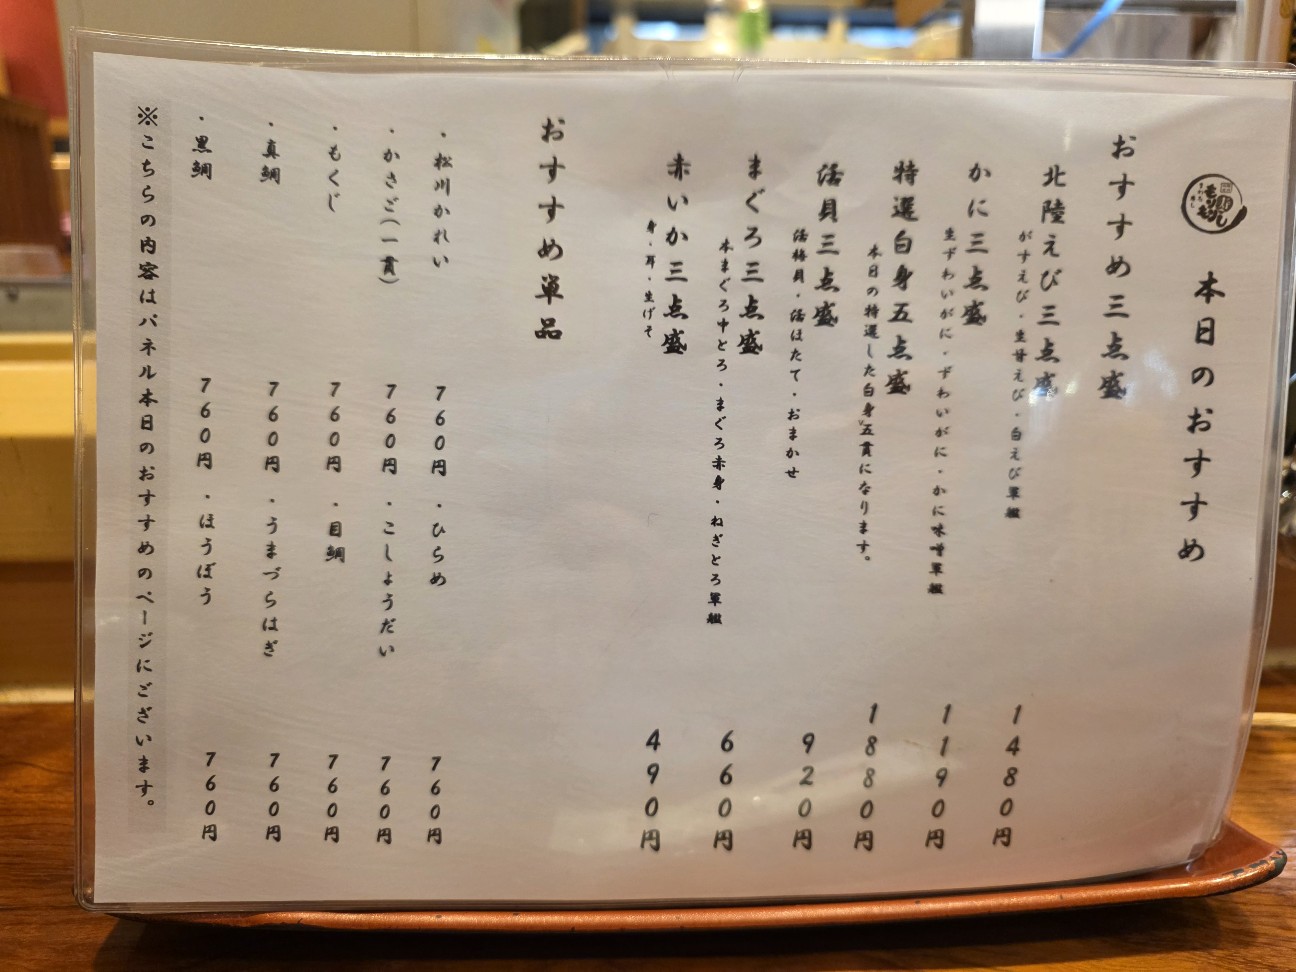 本日のおすすめ
おすすめ三点盛
北陸えび三点盛
がすえび・生甘えび・白えび軍艦
1480円
かに三点盛
生ずわいがに・ずわいがに・かに味噌軍艦
1190円
特選白身五点盛
本日の特選した白身五貫になります。
1880円
活貝三点盛
活梅貝・活ほたて・おまかせ
920円
まぐろ三点盛
本まぐろ中とろ・まぐろ赤身・ねぎとろ軍艦
660円
赤いか三点盛
身・耳・生げそ
490円
おすすめ単品
・松川かれい 760円 ・ひらめ 760円
・かさご(一貫) 760円 ・こしょうだい 760円
・もくじ 760円 ・目鯛 760円
・真鯛 760円 ・うまづらはぎ 760円
・黒鯛 760円 ・ほうぼう 760円
※こちらの内容はパネル本日のおすすめのページにございます。